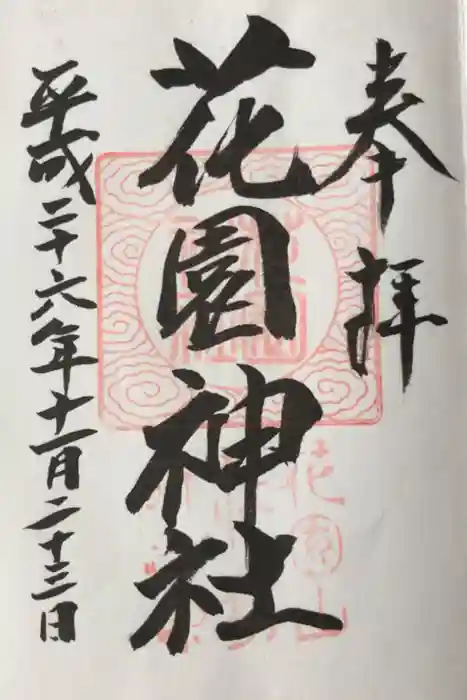 奉拝
花園神社
平成二十六年十一月二十三日
花園山